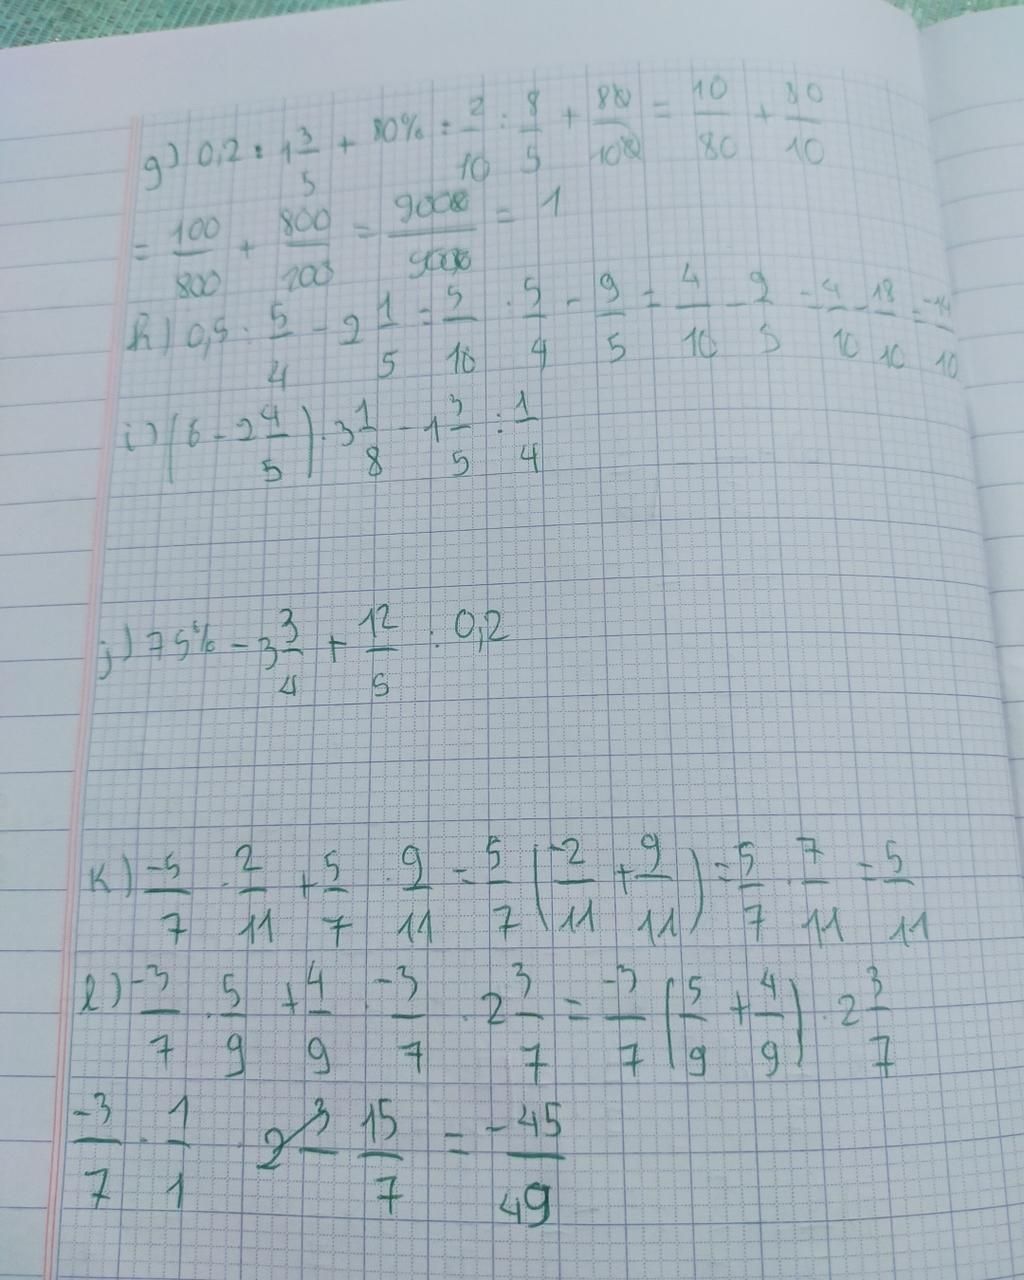 g) 0,2 : 1 3/5 + 80% = 2/10 : 8/5 + 80/100 = 10/80 + 80/10
= 100/800 + 800/200 = 9000/9000 = 1
h) 0,5 · 5/4 - 2 1/5 = 5/10 · 5/4 - 9/5 = 4/10 - 9/5 = 4/10 - 18/10 = -14/10
i) (6 - 2 4/5) · 3 1/8 - 1 3/5 : 1/4
j) 75% - 3 3/4 + 12/5 · 0,2
k) -5/7 · 2/11 + 5/7 · 9/11 = 5/7 (-2/11 + 9/11) = 5/7 · 7/11 = 5/11
l) -3/7 · 5/9 + 4/9 · -3/7 · 2 3/7 = -3/7 (5/9 + 4/9) · 2 3/7
-3/7 · 1/1 · 15/7 = -45/49